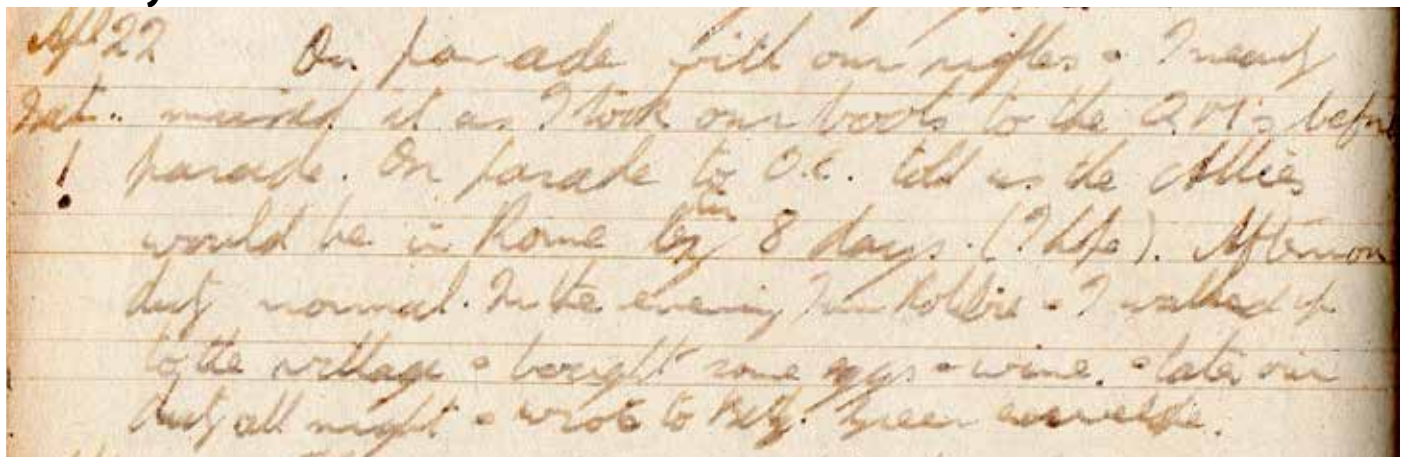 Apl 22 On parade with our rifles & I nearly
Sat. missed it as I took our boots to the Q.M's before
! parade. On parade to O.C. told us the Allies
would be in Rome in 8 days. (I hope). Afternoon
duty normal. In the evening Robbie & I walked up
to the village & bought some eggs & wine. & later on
duty all night & wrote to Betty. Green envelope.